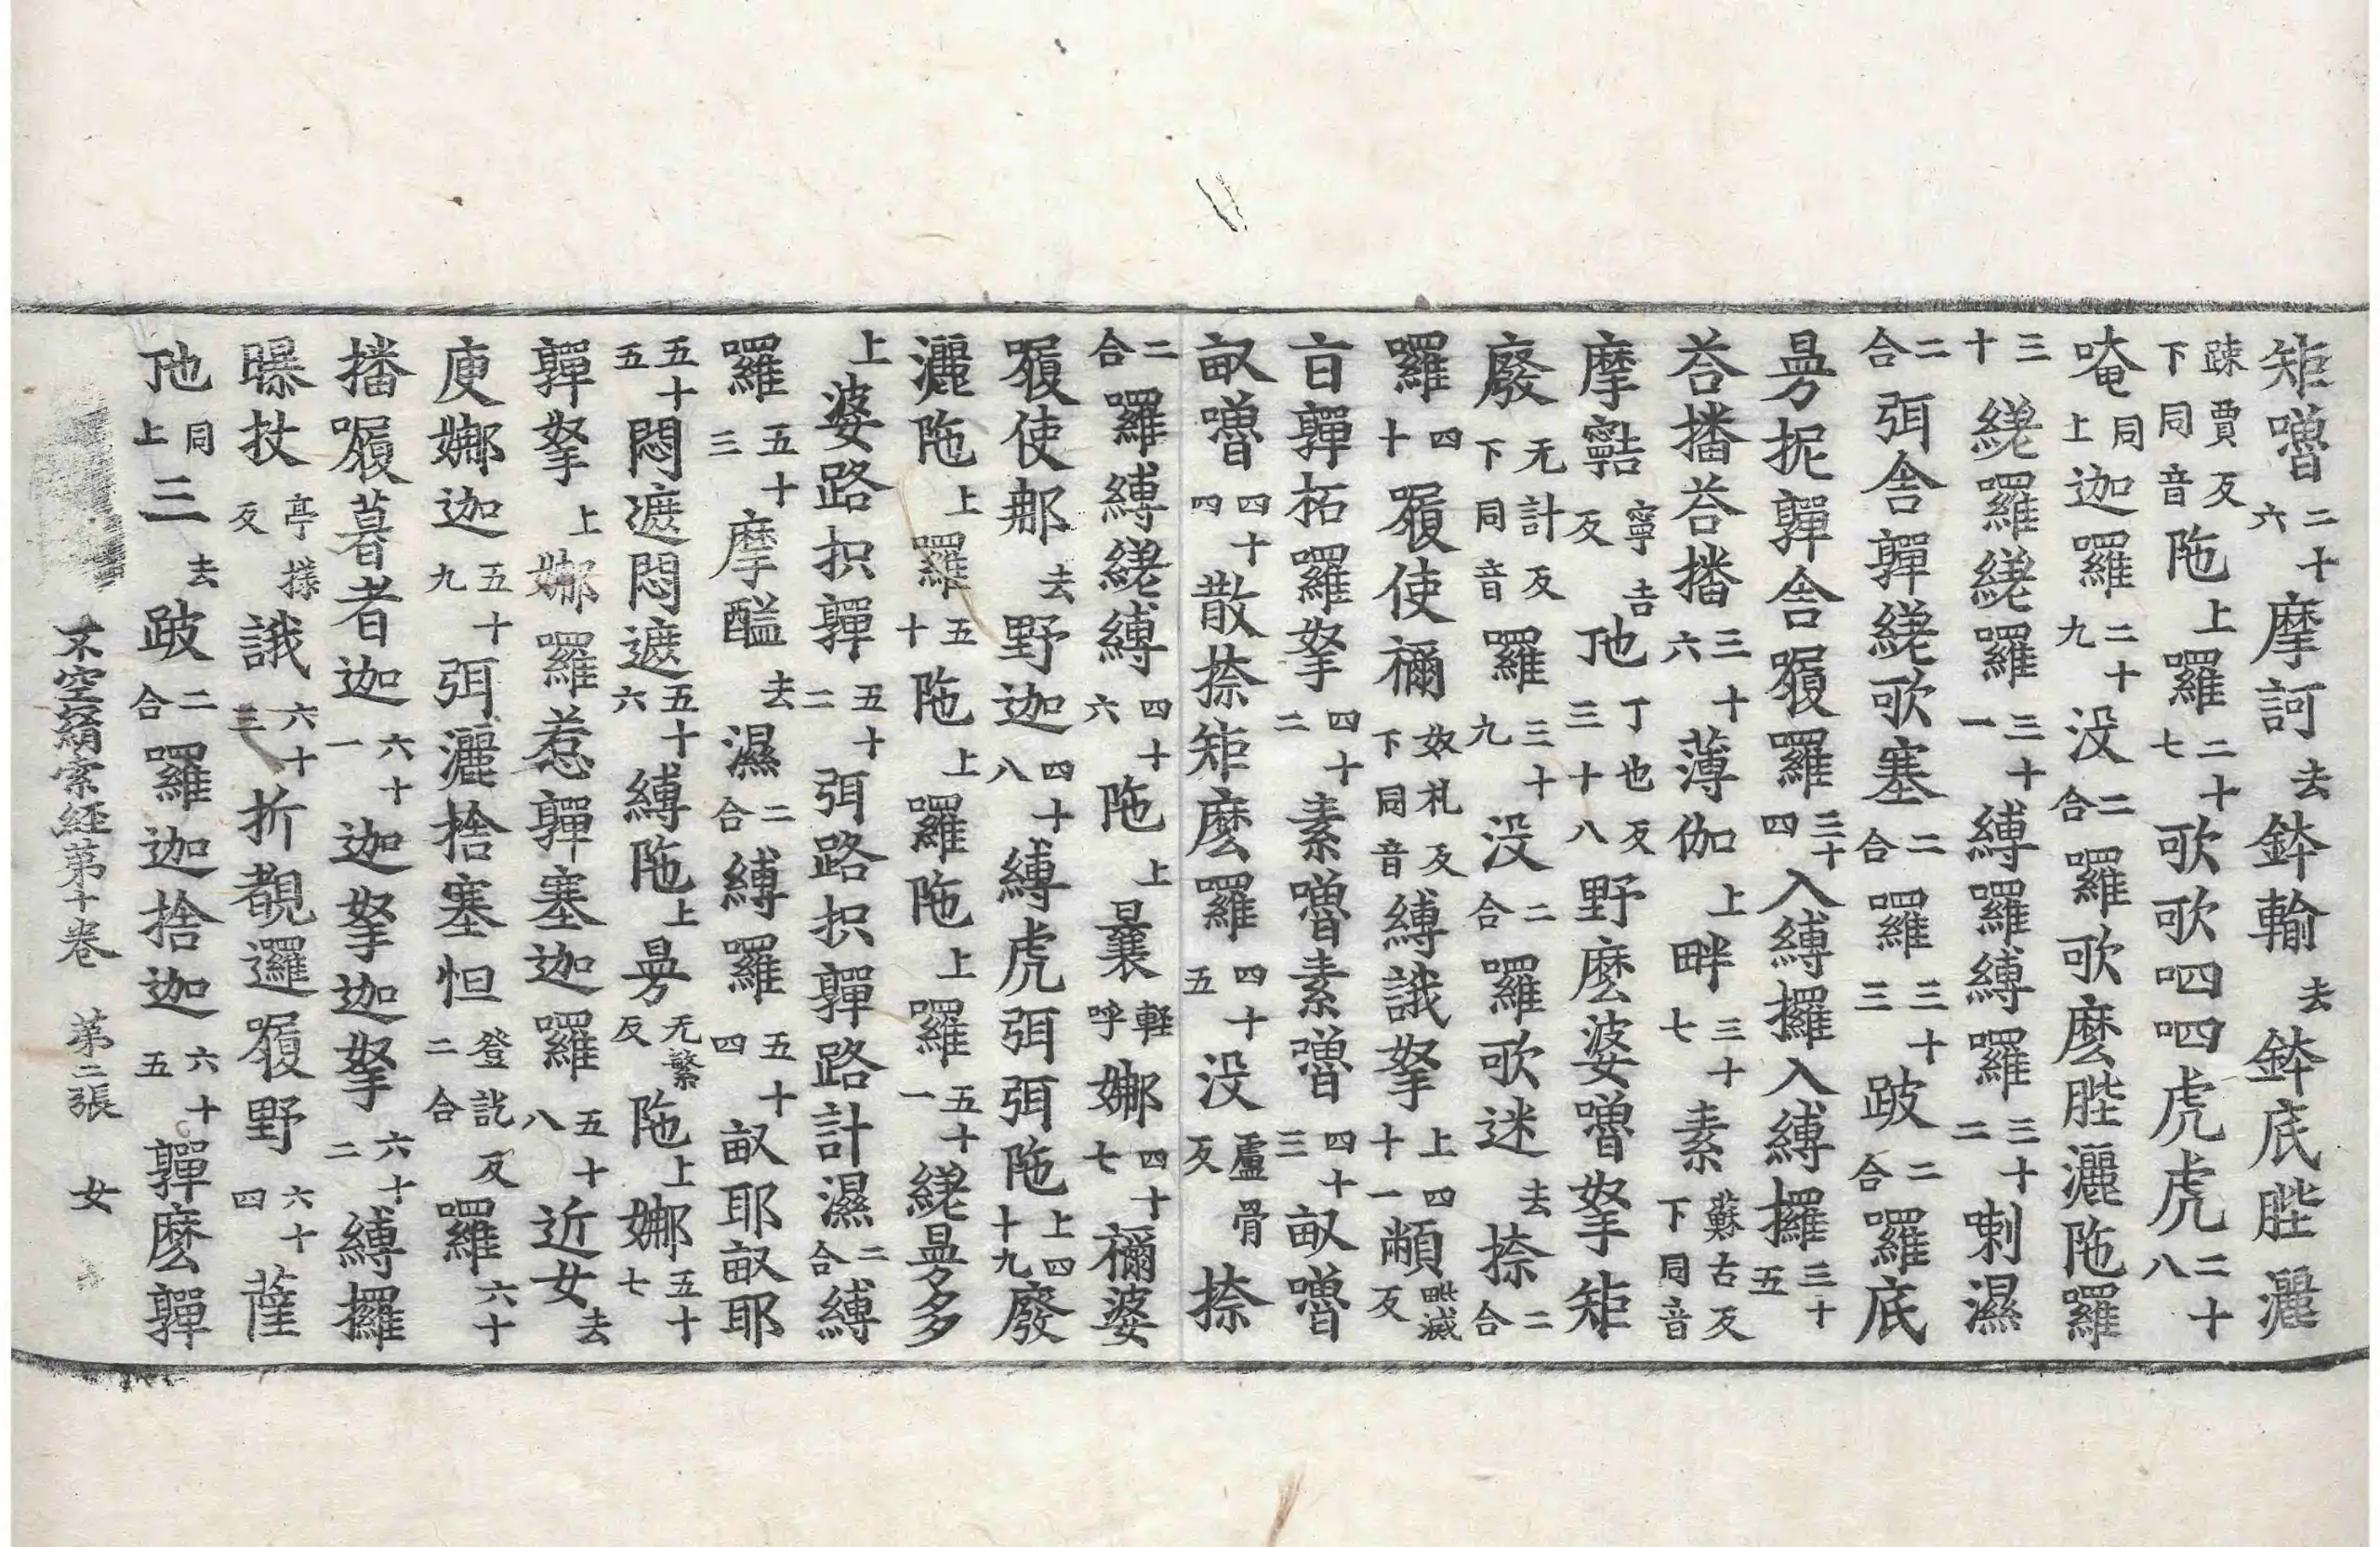 矩嚕二十六摩訶去鉢輸去鉢底㘑灑
疎賈反下同音陁上羅二十七歌歌呬呬虎虎二十八
唵同上迦囉二十九没二合囉歌麽㘑灑陁羅
三十㲠囉㲠囉三十一縛囉縛囉三十二喇濕
二合弭舍䫂㲠歌塞二合囉三十三跛二合囉底
曼抳䫂舍履囉三十四入縛攞入縛攞三十五
荅播荅播三十六薄伽上畔三十七素蘇古反下同音
摩寧吉反𠰷丁也反三十八野麽婆嚕拏矩
廢无計反下同音囉三十九没二合囉歌迷去捺二合
囉四十履使禰奴札反下同音縛誐拏上四十一𩑶毗滅反
䫂柘囉拏四十二素嚕素嚕四十三㕹嚕
㕹嚕四十四散捺矩麽囉四十五没盧骨反捺
二合囉縛㲠縛四十六陁上曩輕呼娜四十七禰婆
履使那去野迦四十八縛虎弭弭陁上四十九廢
灑陁上囉五十陁上囉陁上囉五十一㲠曼多
上婆路抧䫂五十二弭路抧䫂路計濕二合縛
羅五十三摩醯去濕二合縛羅五十四㕹耶㕹耶
五十五悶遮悶遮五十六縛陁上曼无繁反陁上娜五十七
䫂拏上娜羅惹䫂塞迦囉五十八近女去
庾娜迦五十九弭灑捨塞怛登訖反二合羅六十
播履暮者迦六十一迦拏迦拏六十二縛攞
曝杖亭㨾反誐六十三折覩邏履野六十四薩
𠰷同上三去跛二合羅迦捨迦六十五䫂麽䫂
不空羂索経第十卷 第二張 女